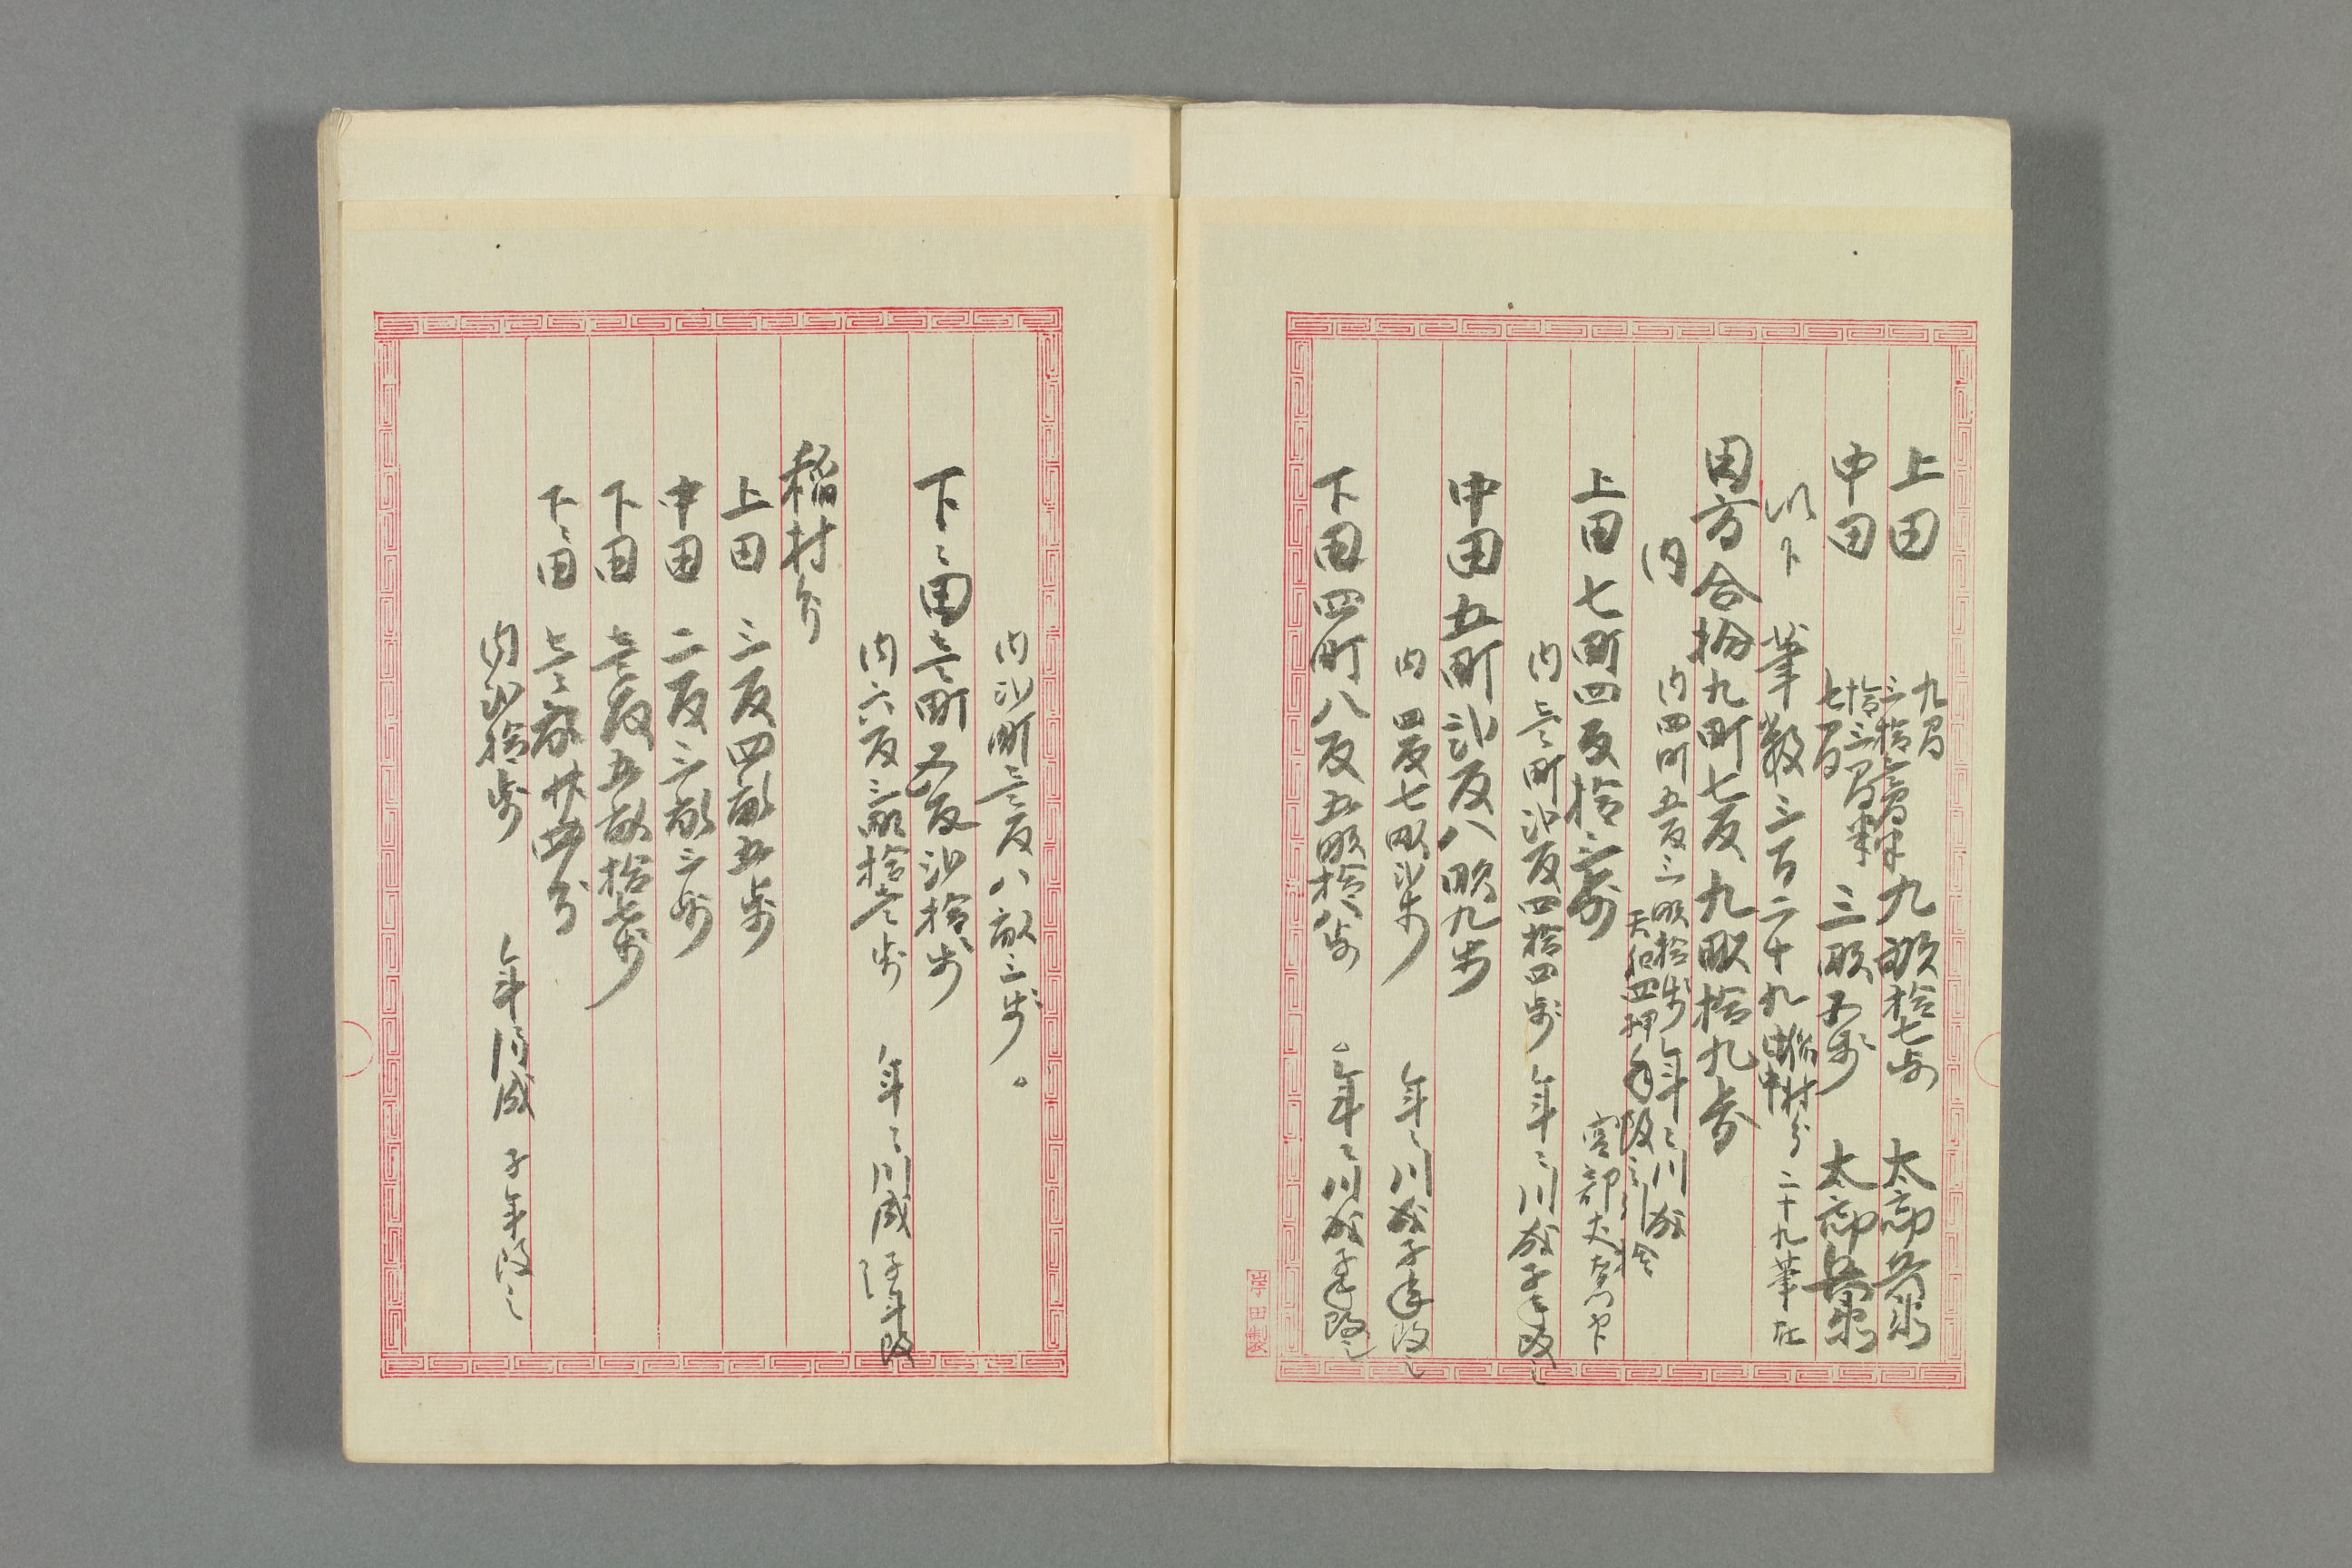 上田 九間 三拾壱間半 九畝拾七歩 太郎兵衛
中田 拾三間半 七間 三畝五歩 太郎兵衛
以下 筆数三百二十九 稲村分 二十九筆
田方合拾九町七反九畝拾九歩
内 内四町五反三畝拾歩 年々川成
上田七町四反拾三歩
内壱町弐反四拾四歩 年々川成子年改
中田五町弐反八畝九歩
内四反七畝弐歩 年々川成子年改
下田四町八反五畝拾八歩 年々川成子年改
内弐町三反八畝三歩
下々田壱町又反弐拾歩
内六反三畝拾壱歩 年々川成 子年改
稲村分
上田 三反四畝五歩
中田 二反三畝三歩
下田 壱反五畝拾七歩
下々田 壱畝廿四歩
内弐拾歩 年々川成 子年改